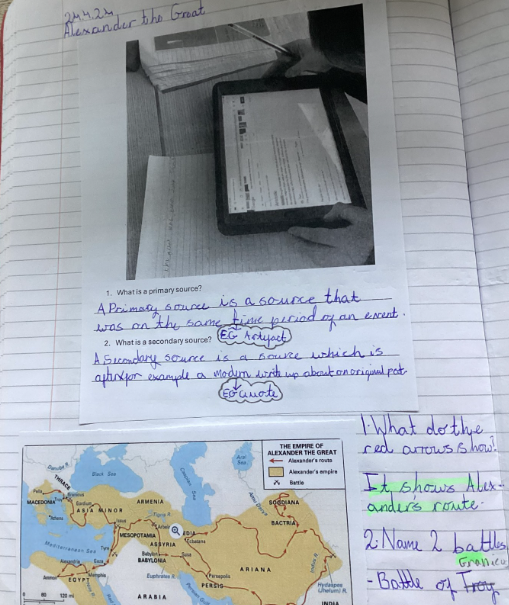 24.4.24
Alexander the Great
1. What is a primary source?
A Primary source is a source that
was on the same time period of an event.
EG Artefact
2. What is a secondary source?
A Secondary source is a source which is
example a modern write up about an original
EG Quote
THE EMPIRE OF
ALEXANDER THE GREAT
Alexander's route
Alexander's empire
Battle
Danube R.
Black Sea
Caspian Sea
Aral Sea
THRACE
MACEDONIA
Pella
Athens
Gordium
ASIA MINOR
ARMENIA
SOGDIANA
BACTRIA
Tigris R.
MESOPOTAMIA
ASSYRIA
Ecbatana
Mediterranean Sea
Tyre
Babylon
Susa
BABYLONIA
ARIANA
Alexandria
Gaza
Memphis
Ammon
EGYPT
Euphrates R.
Persepolis
PERSIS
Indus R.
Hydaspes
(Jhelum) R.
ARABIA
INDIA
1. What do the
red arrows show?
It shows Alex-
ander's route.
2. Name 2 battles
Granicu
- Battle of Troy